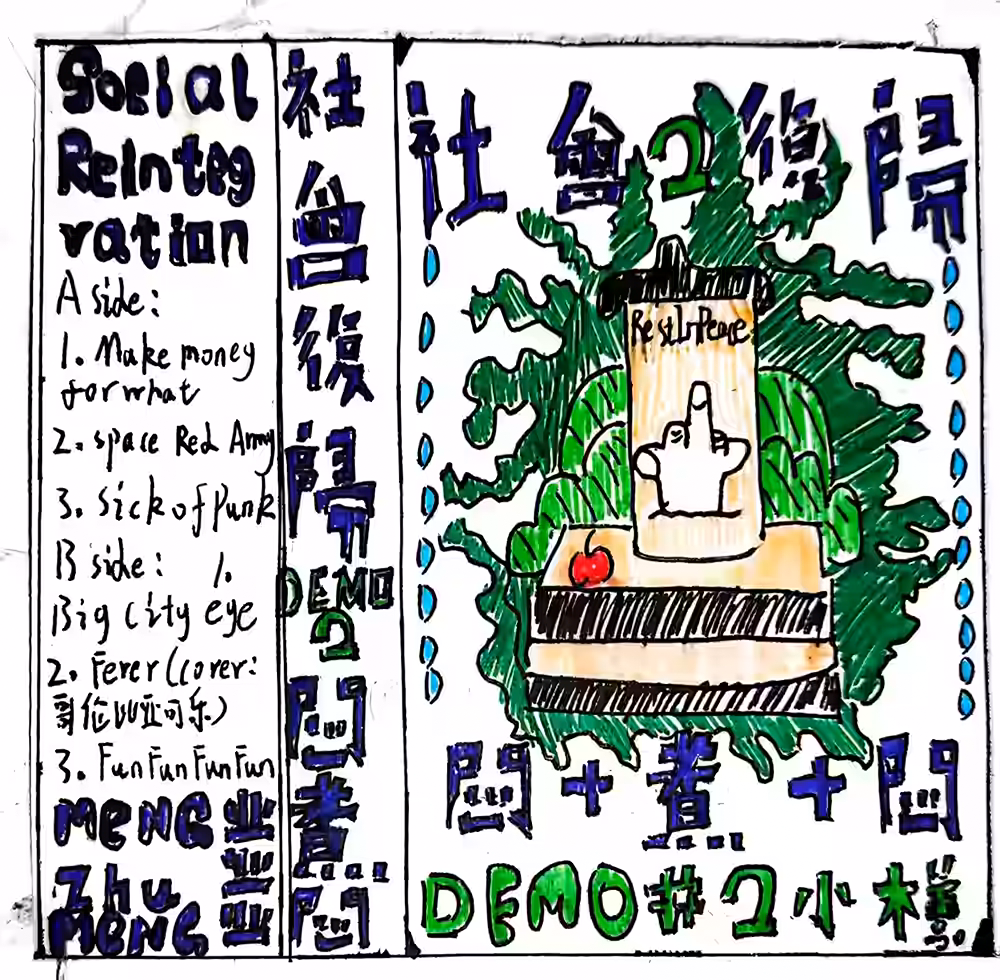 Social
Reinteg
ration
A side:
1. Make money
for what
2. space Red Army
3. Sick of Punk
B side: 1.
Big city eye
2. Ferer (cover:
哥伦比亚可乐)
3. FunFunFunFun
MENG
Zhu
MENG
社
會
復
歸
DEMO
2
悶
煮
悶
社會2復歸
Rest In Peace
悶+煮+悶
DEMO#2小樣